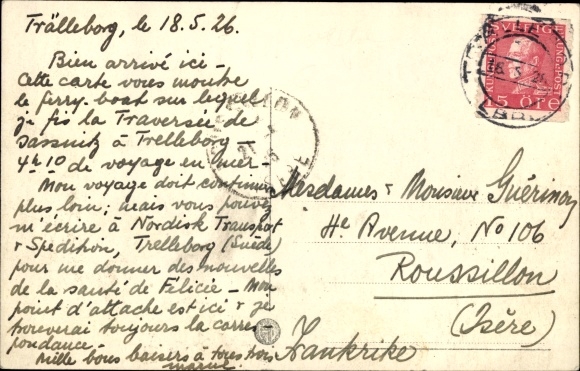 Trälleborg, le 18.5.26.
Bien arrivé ici –
Cette carte vous montre
le ferry-boat sur lequel
je fis la Traversée de
Sassnitz à Trelleborg –
4h10 de voyage en mer –
Mon voyage doit continuer
plus loin; mais vous pouvez
m'écrire à Nordisk Transport
& Spedition, Trelleborg (Suède)
pour me donner des nouvelles
de la santé de Félicie – Mon
point d'attache est ici & je
trouverai toujours la corres-
pondance –
Mille bons baisers à tous trois
SVERIGE
KUNGL. POST
15 ÖRE
Mesdames & Monsieur Guérimoy
He Avenue, No 106
Roussillon
(Isère)
Frankrike